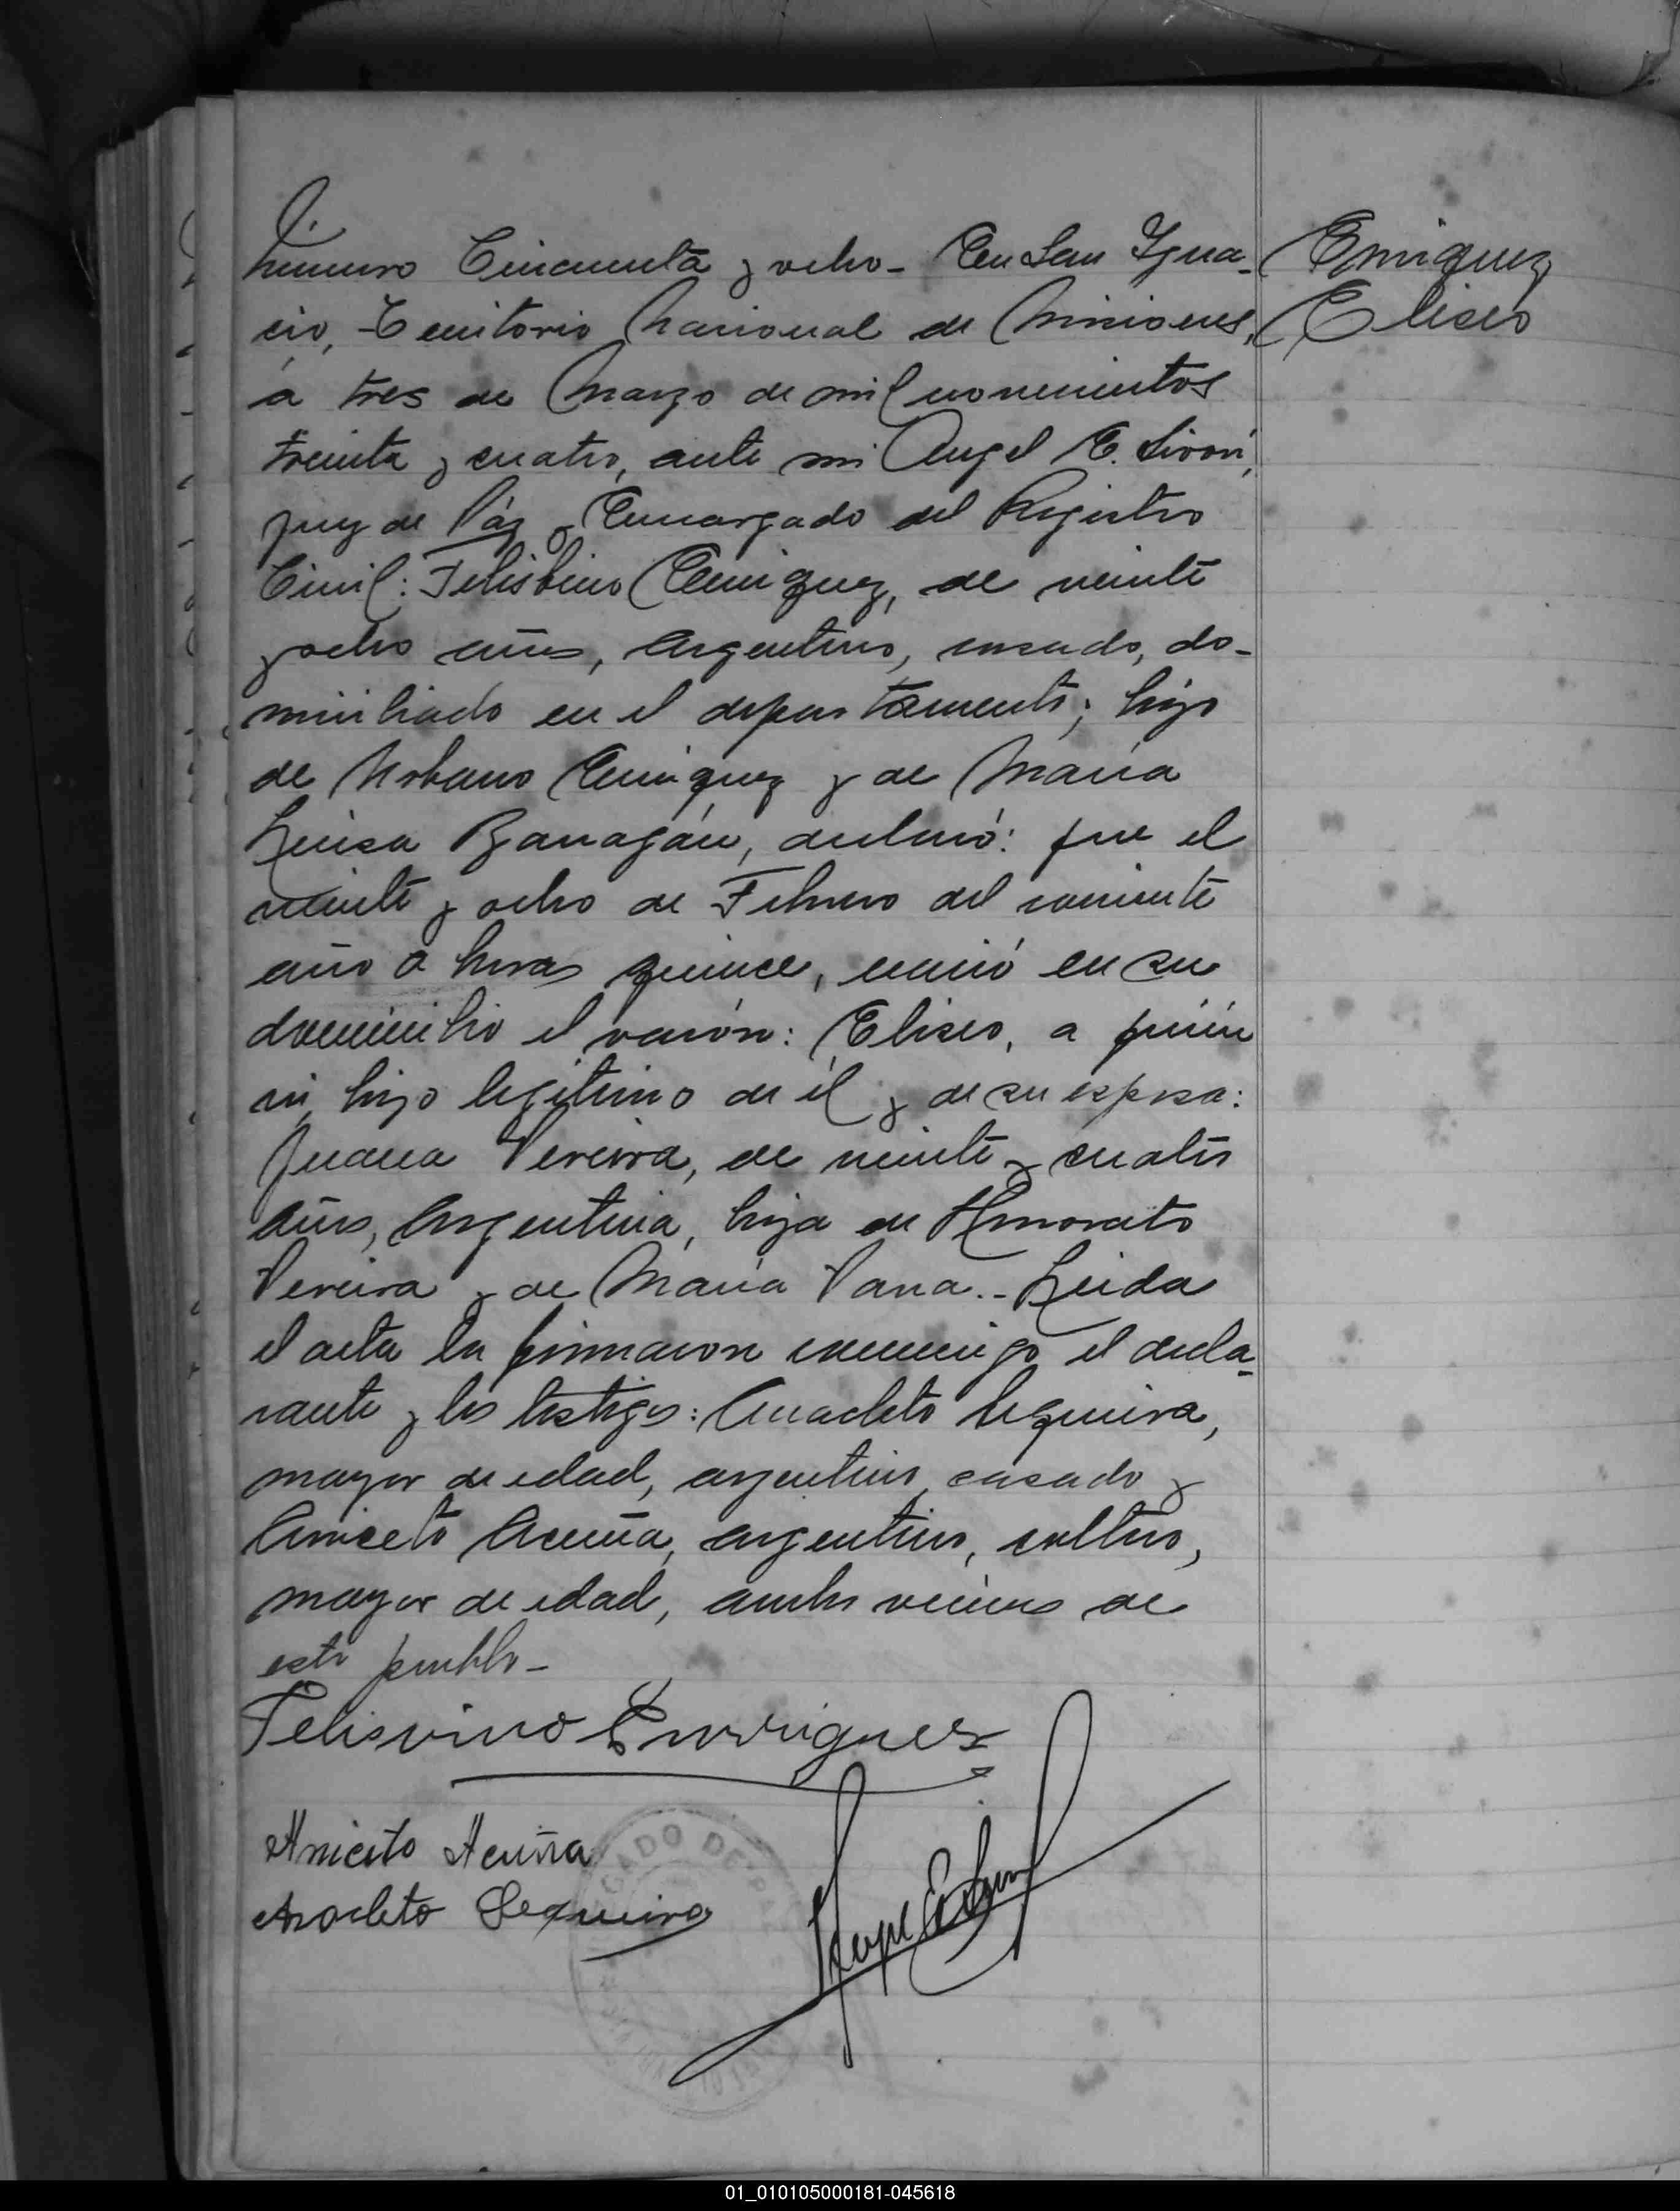 número Cincuenta y ocho - En San Igna-
cio, Territorio Nacional de Misiones,
a tres de Marzo de mil novecientos
treinta y cuatro, ante mi Angel E.
Juez de Páz y Encargado del Registro
Civil: Felisbino Enriquez, de veinte
y ocho años, Argentino, casado, do-
miciliado en el departamento; hijo
de Urbano Enriquez y de María
Luisa Barragán, declaró: que el
veinte y ocho de Febrero del corriente
año a horas quince, nació en su
domicilio el varón: Eliseo, a quién
vi, hijo legitimo de él y de su esposa:
Juana Pereira, de veinte y cuatro
años, Argentina, hija de Honorato
Pereira y de María .- Leida
el acta la firmaron conmigo el decla-
rante y los testigos: Anacleto Sequeira,
mayor de edad, argentino, casado y
Aniceto Acuña, argentino, soltero,
mayor de edad, ambos vecinos de
este pueblo -
Felisvino Enrriquez
Aniceto Acuña
Anacleto Sequeira
Enriquez
Eliseo
JUZGADO DE PAZ
01_010105000181-045618